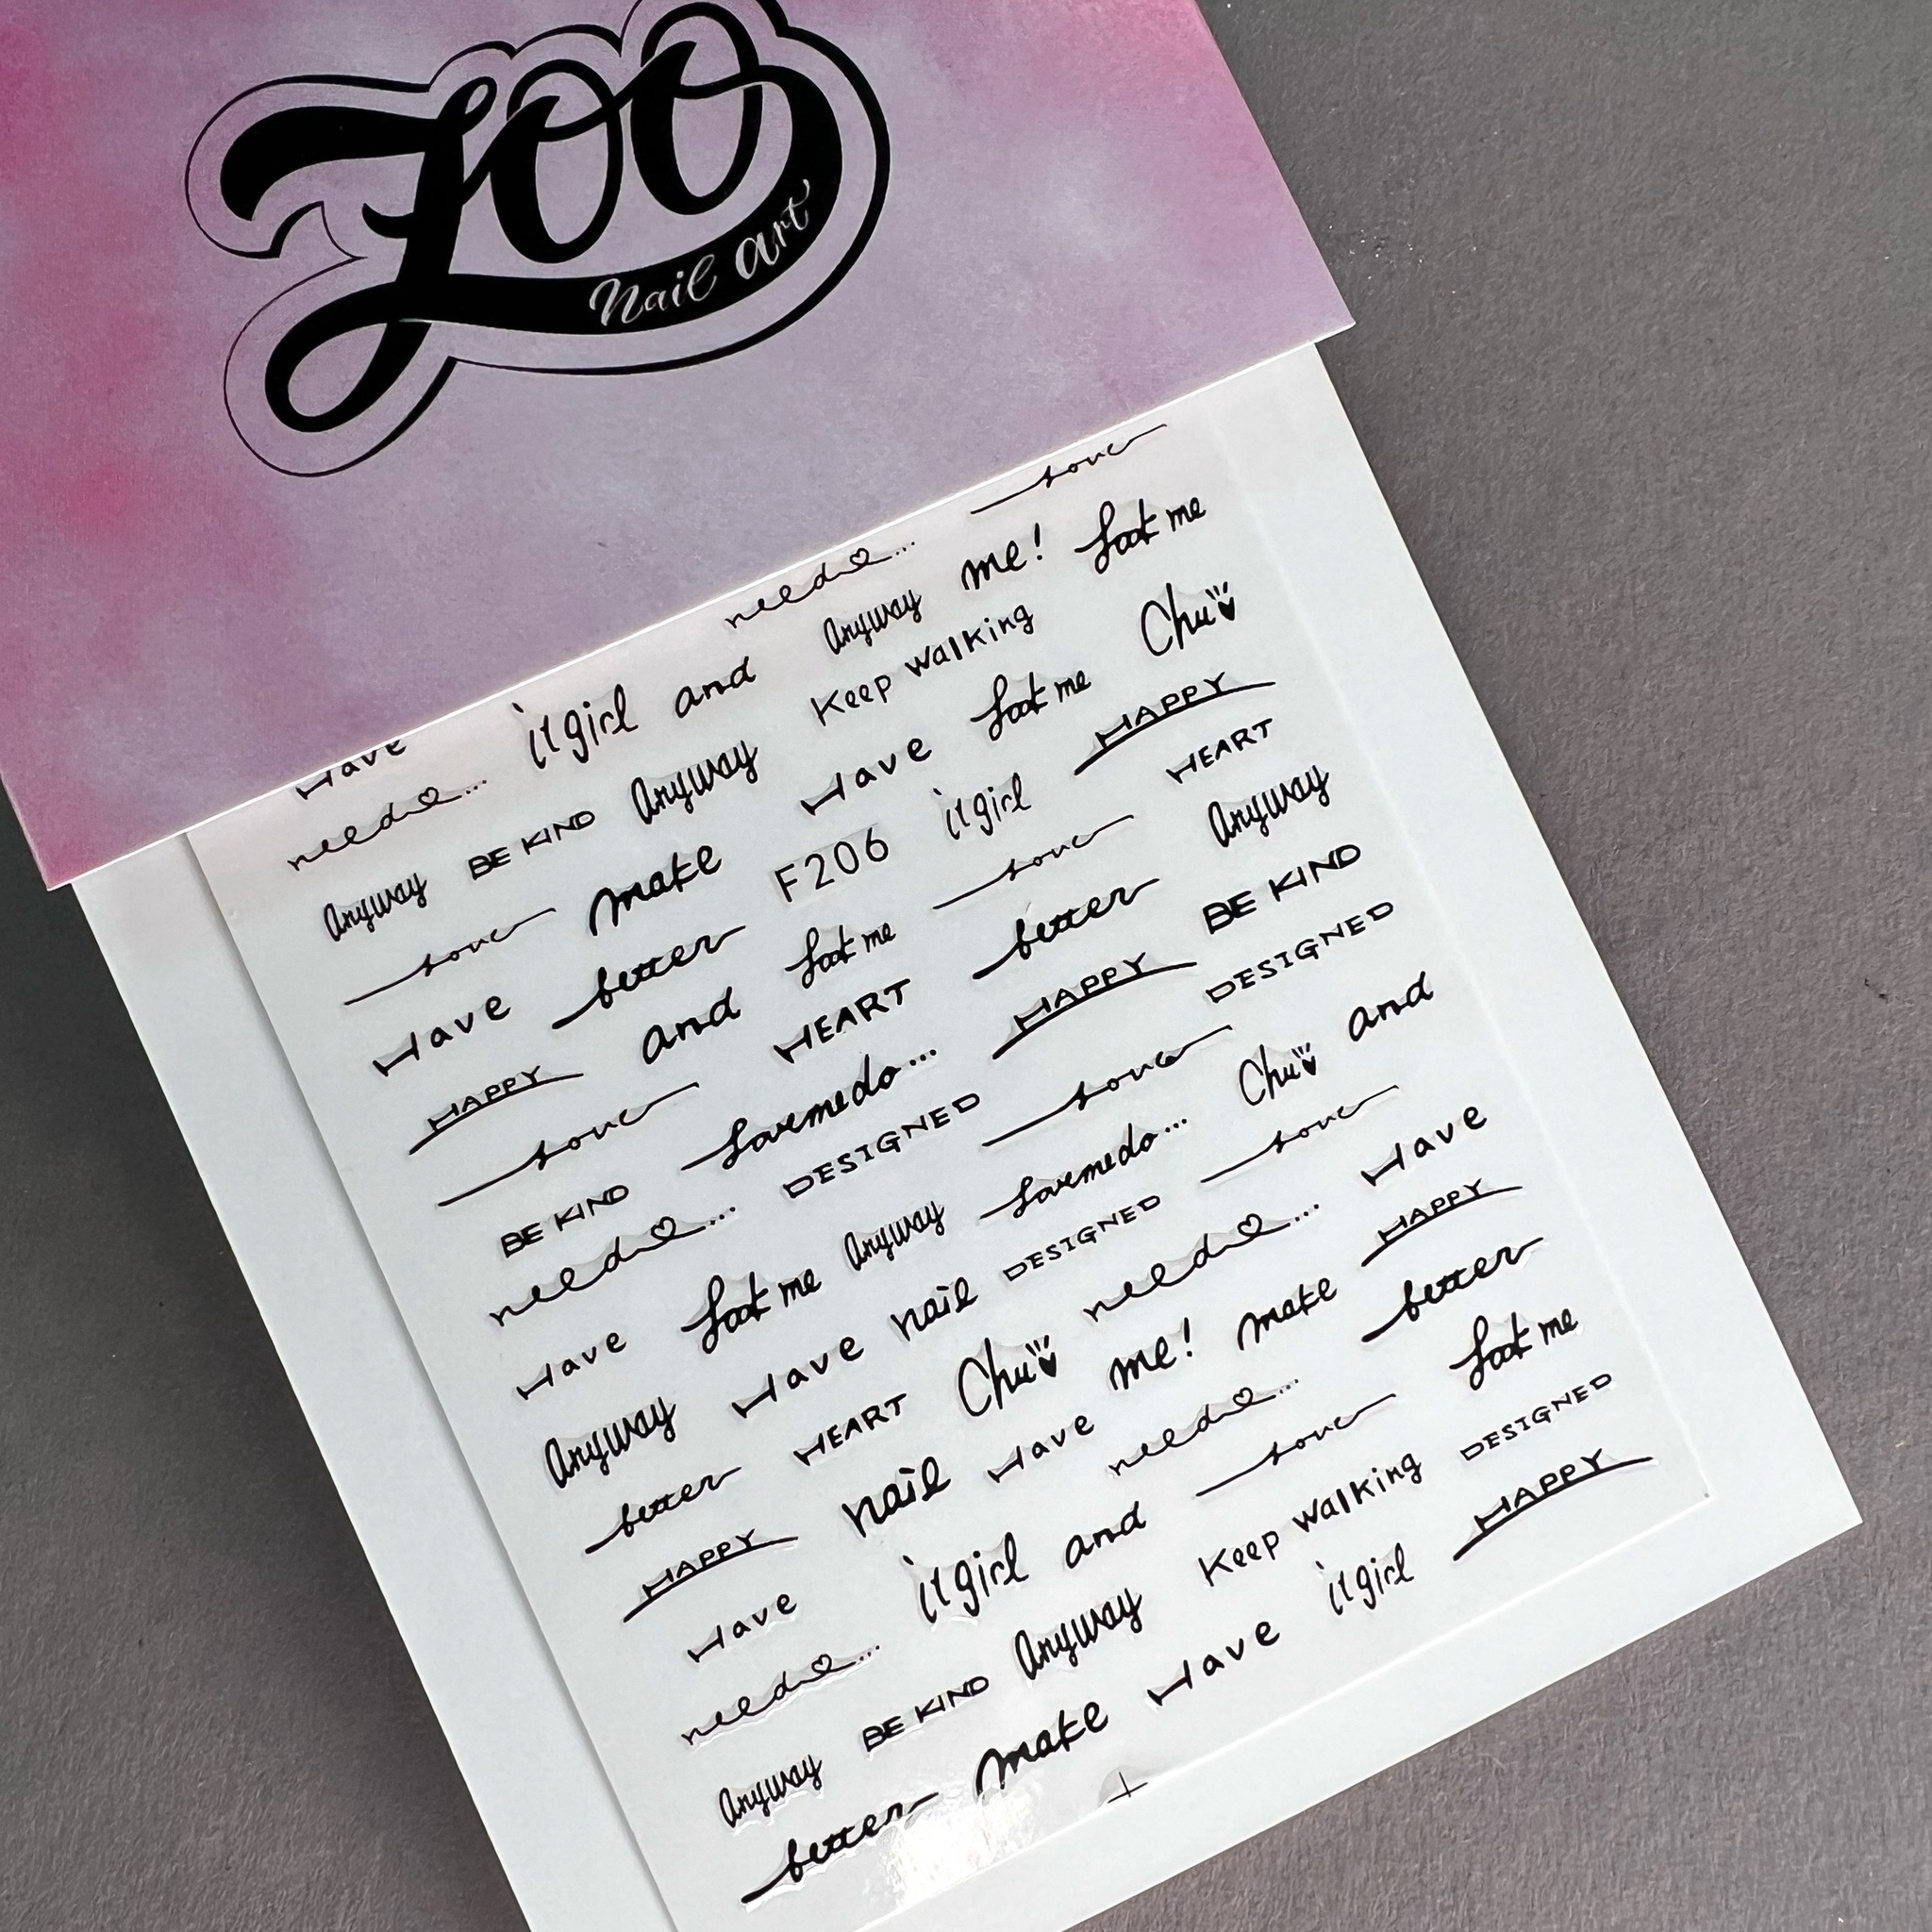 Zoo
Nail Art
love
need ...
Have
need ... it girl and Anyway me! Look me
Anyway BE KIND Anyway Keep walking Chu
love make Have Look me
Have better F206 it girl HAPPY
HAPPY and Look me love HEART
love HEART better Anyway
BE KIND Lovemedo... HAPPY BE KIND
need ... DESIGNED love DESIGNED
Have Look me Anyway Lovemedo... Chu and
Anyway Have nail DESIGNED love
better HEART Chu need ... Have
HAPPY nail Have me! make HAPPY
Have need ... better
need ... it girl and love Look me
Anyway BE KIND Anyway Keep walking DESIGNED
better make Have it girl HAPPY